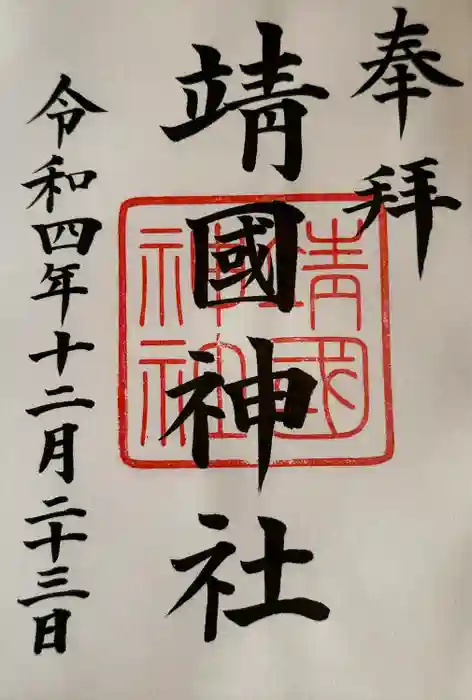 奉拝
靖國神社
靖國
神社
令和四年十二月二十三日